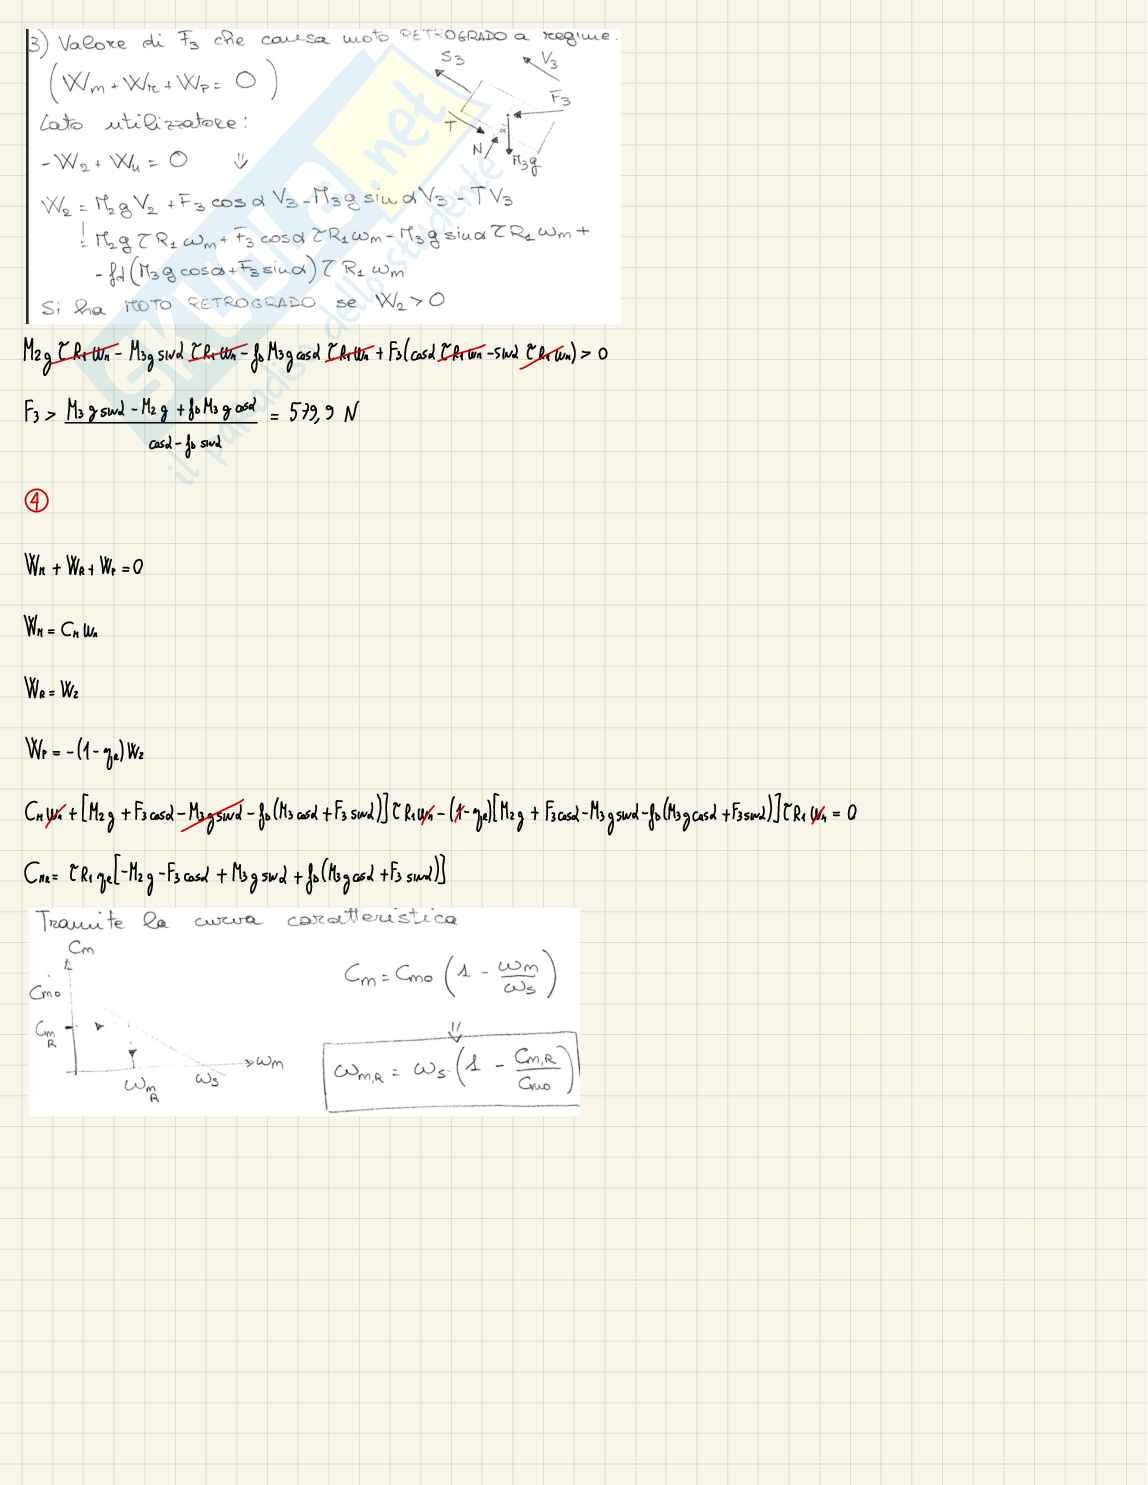 3) Valore di F₃ che causa moto RETROGRADO a regime.
(Wm + WR + WP = 0)
Lato utilizzatore:
-W₂ + Wu = 0 ⇓
S₃
V₃
F₃
T
N
M₃g
W₂ = M₂gV₂ + F₃ cosα V₃ - M₃g sinα V₃ - TV₃
= M₂g τ R₁ ωm + F₃ cosα τ R₁ ωm - M₃g sinα τ R₁ ωm +
- fd (M₃g cosα + F₃ sinα) τ R₁ ωm
Si ha MOTO RETROGRADO se W₂ > 0
M₂g τ R₁ ωm - M₃g sinα τ R₁ ωm - fD M₃g cosα τ R₁ ωm + F₃ (cosα τ R₁ ωm - sinα τ R₁ ωm) > 0
F₃ > (M₃g sinα - M₂g + fD M₃g cosα) / (cosα - fD sinα) = 579,9 N
④
WM + WR + WP = 0
WM = CM ωm
WR = W₂
WP = -(1 - ηR) W₂
CM ωm + [M₂g + F₃ cosα - M₃g sinα - fD (M₃ cosα + F₃ sinα)] τ R₁ ωm - (1 - ηR) [M₂g + F₃ cosα - M₃g sinα - fD (M₃g cosα + F₃ sinα)] τ R₁ ωm = 0
CMR = τ R₁ ηR [-M₂g - F₃ cosα + M₃g sinα + fD (M₃g cosα + F₃ sinα)]
Tramite la curva caratteristica
Cm
Cmo
CmR
ωmR
ωs
ωm
Cm = Cmo (1 - ωm/ωs)
⇓
ωm,R = ωs · (1 - Cm,R/Cmo)
SKUOLA.net
il paradiso dello studente